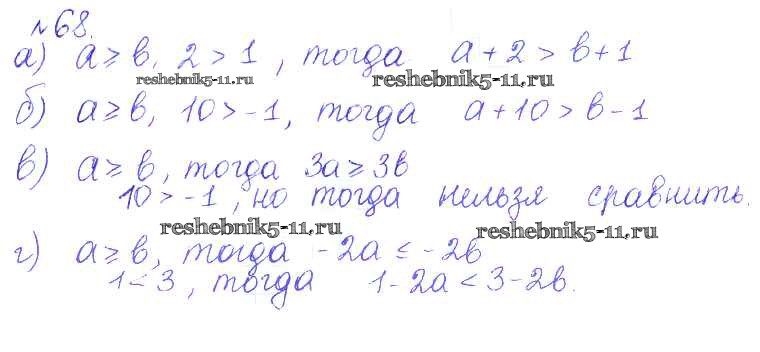 №68.
а) a ≥ b, 2 > 1, тогда a + 2 > b + 1
reshebnik5-11.ru reshebnik5-11.ru
б) a ≥ b, 10 > -1, тогда a + 10 > b - 1
в) a ≥ b, тогда 3a ≥ 3b
10 > -1, но тогда нельзя сравнить.
reshebnik5-11.ru reshebnik5-11.ru
г) a ≥ b, тогда -2a ≤ -2b
1 < 3, тогда 1-2a < 3-2b.